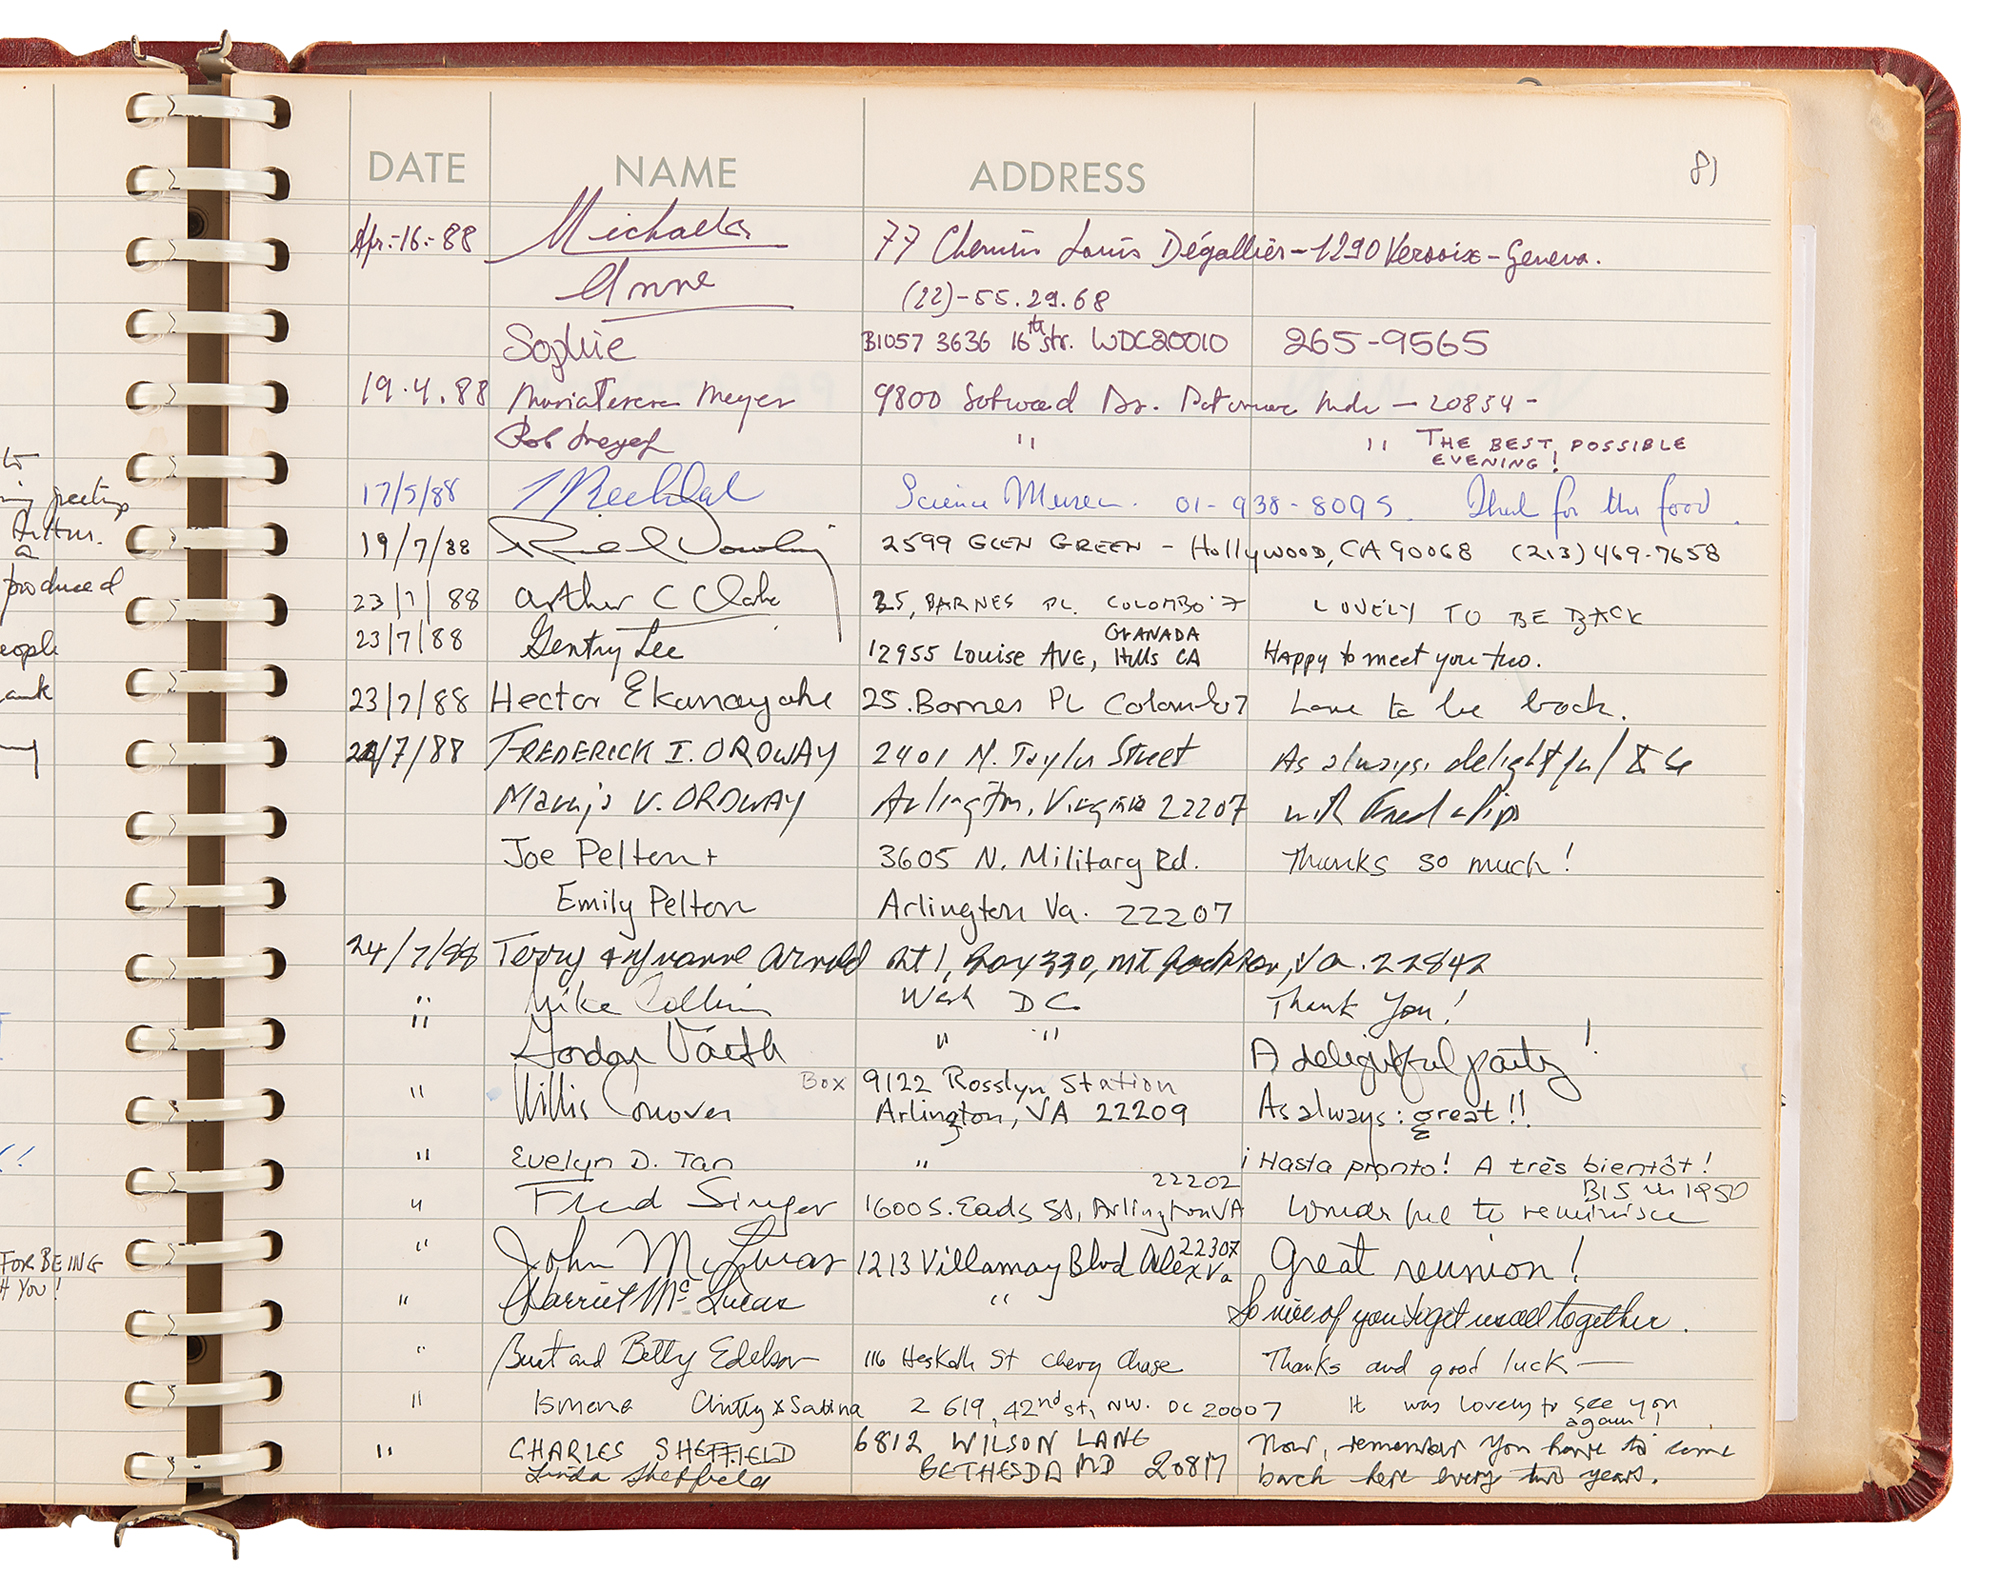 DATE NAME ADDRESS 81
Apr.-16.-88 Michaela 77 Chemin Louis Dégallier-1290 Versoix-Geneva.
Anne (22)-55.29.68
Sophie B1057 3636 16th str. WDC20010 265-9565
19.4.88 MariaTeresa Meyer 9800 Dr. Potomac Md. - 20854 -
Rob Meyer " " THE BEST POSSIBLE
EVENING!
17/5/88 Science Museum. 01-938-8095. Thank for the food.
19/7/88 2599 GLEN GREEN - HollywooD, CA 90068 (213) 469-7658
23/7/88 Arthur C Clarke 25, BARNES PL. COLOMBO 7 LOVELY TO BE BACK
23/7/88 Gentry Lee 12955 Louise AVE, GRANADA Hills CA Happy to meet you two.
23/7/88 Hector Ekanayake 25. Barnes PL Colombo 7 Love to be back.
24/7/88 FREDERICK I. ORDWAY 2401 N. Taylor Street As always, delightful to be
V. ORDWAY Arlington, Virginia 22207 with friendships
Joe Pelton + 3605 N. Military Rd. Thanks so much!
Emily Pelton Arlington Va. 22207
24/7/88 Terry & Yvonne Arnold Rt 1, Box 330, MT Jackson, Va. 22842
" Mike Collins Wash DC Thank You!
" Gordon Vaeth " " A delightful party!
" Willis Conover Box 9122 Rosslyn Station
Arlington, VA 22209 As always: great!!
" Evelyn D. Tan " ¡Hasta pronto! A très bientôt!
" Fred Singer 1600 S. Eads St, Arlington VA 22202 Wonderful to reminisce BIS in 1950
" John McLucas 1213 Villamay Blvd Alex Va 22307 Great reunion!
" Harriet McLucas " So nice of you to get us all together.
" Burt and Betty Edelson 116 Hesketh St Chevy Chase Thanks and good luck —
" Ismene Chitty & Sabina 2619, 42nd St, NW. DC 20007 It was lovely to see you
again!
" CHARLES SHEFFIELD 6812 WILSON LANE Now, remember you have to come
Linda Sheffield BETHESDA MD 20817 back here every two years.
greetings
Arthur.
produced
people
FOR BEING
YOU!